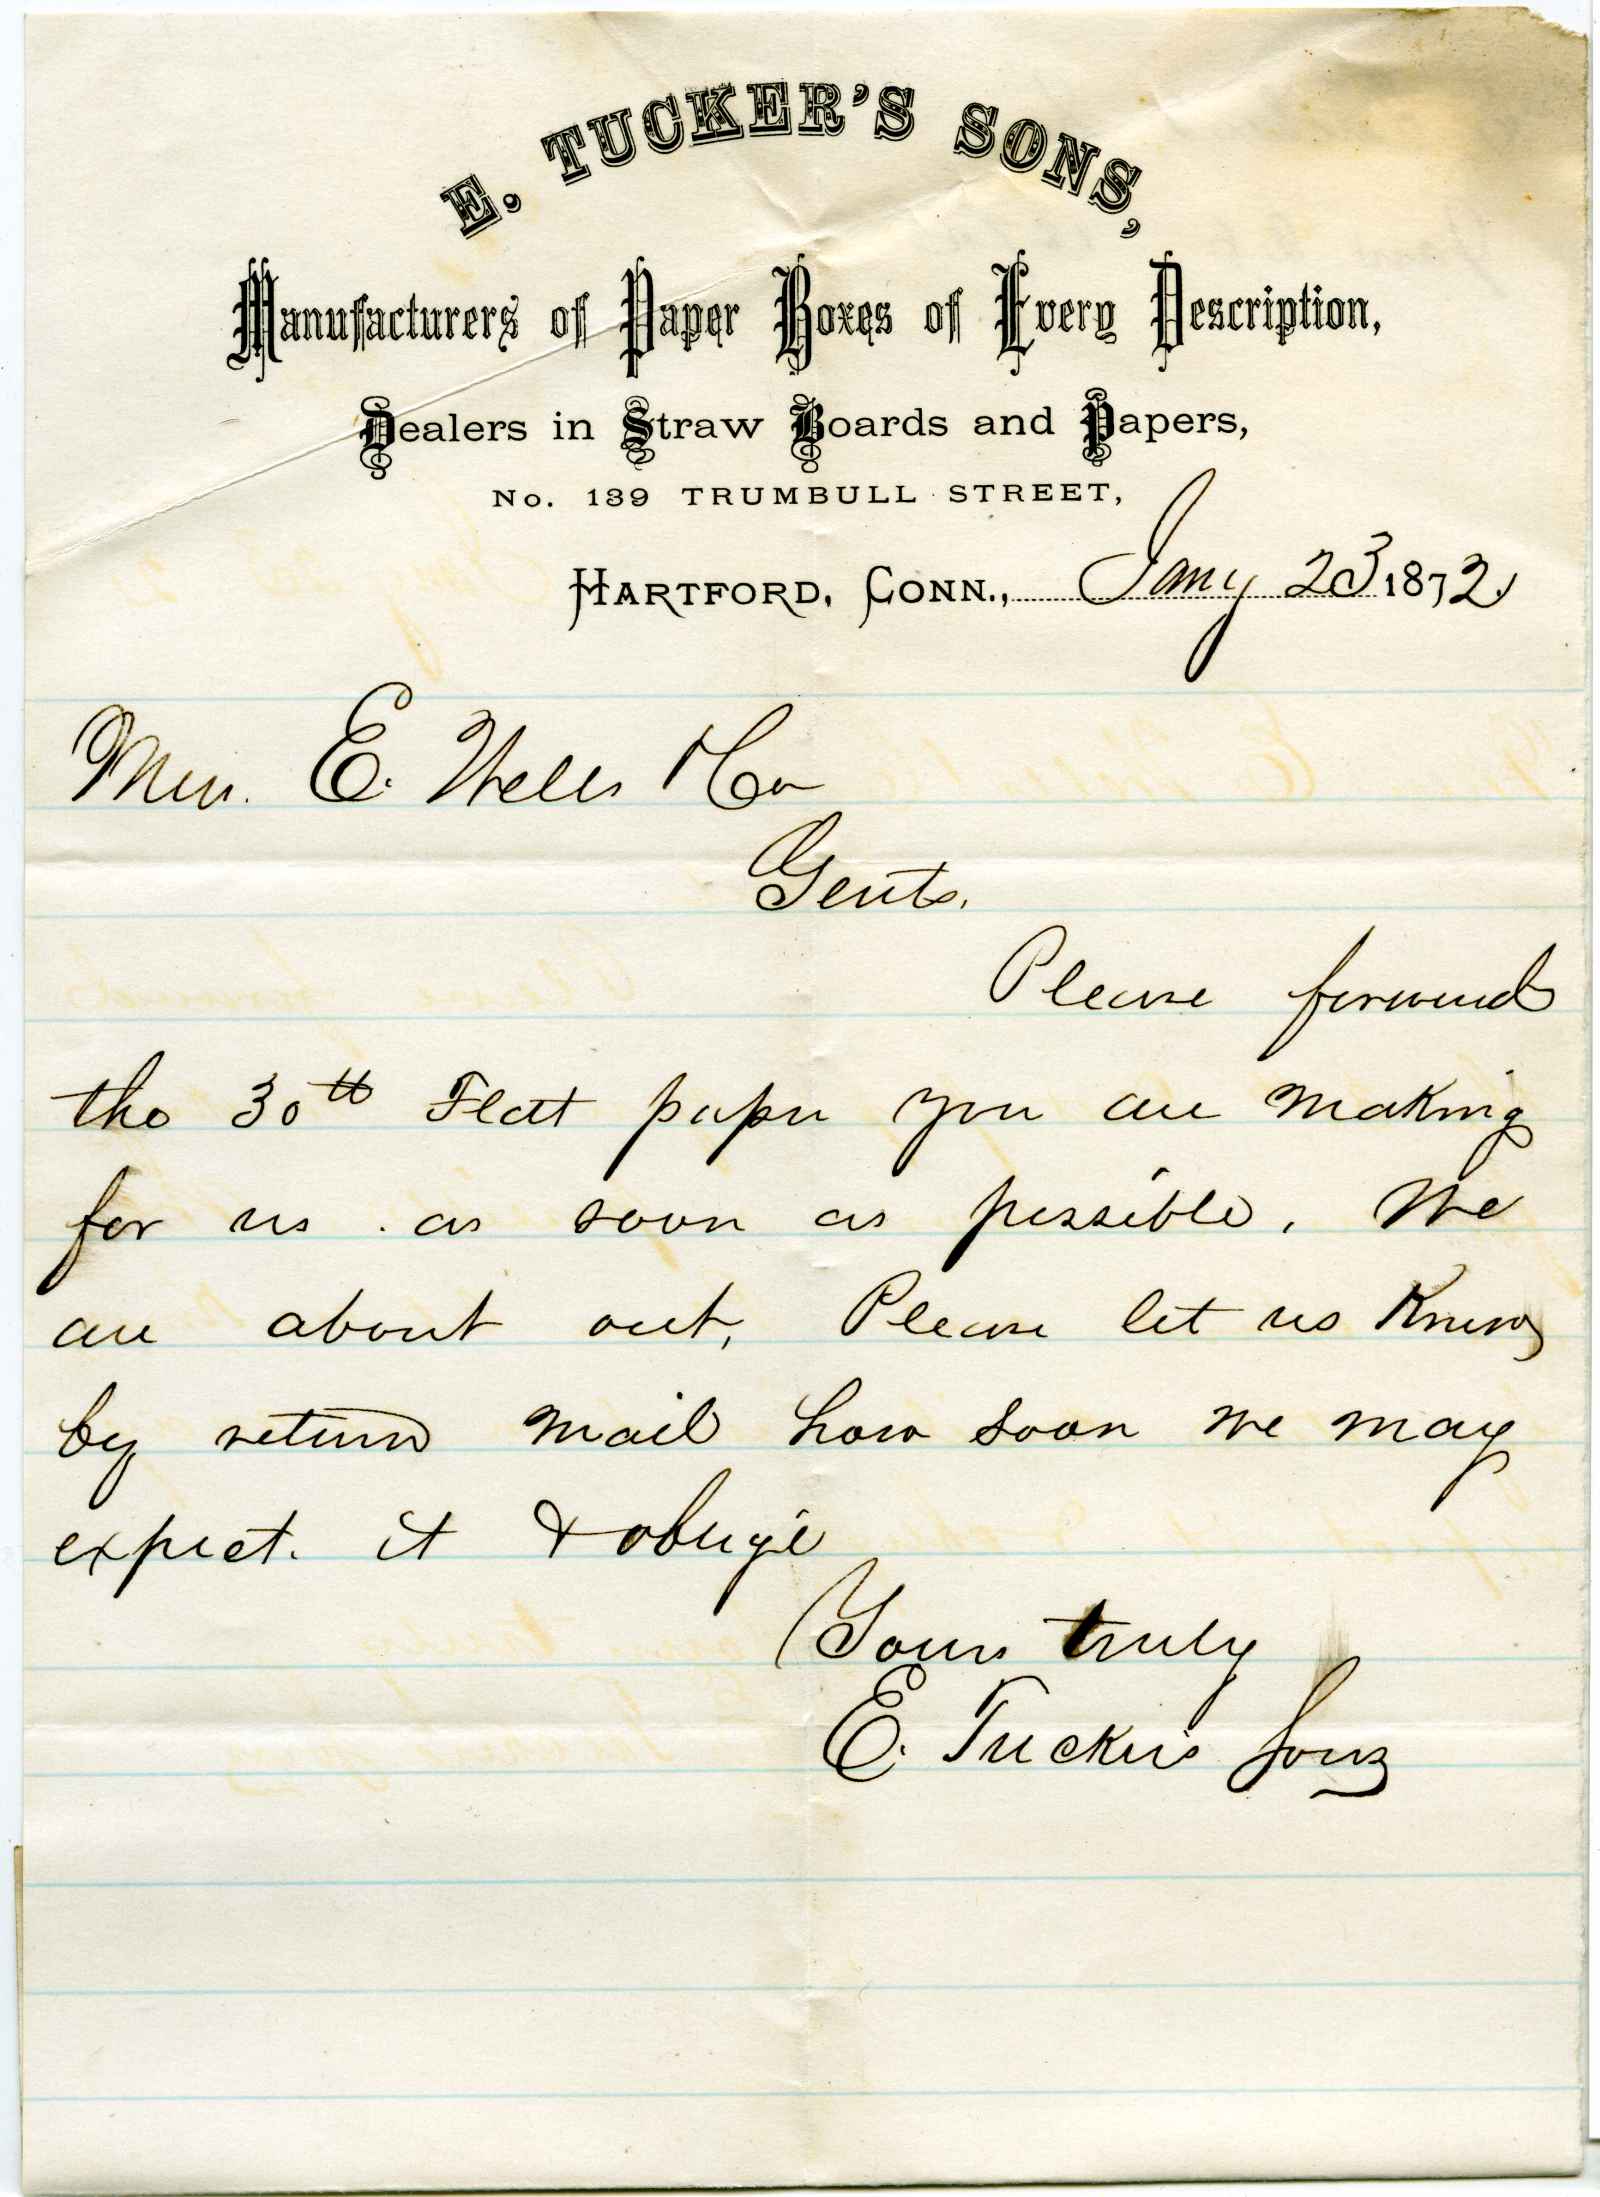 E. TUCKER'S SONS,
Manufacturers of Paper Boxes of Every Description,
Dealers in Straw Boards and Papers,
No. 139 TRUMBULL STREET,
HARTFORD, CONN., Jany 23 1872.
Mess. E. Wells & Co
Gents.
Please forward
the 30 tt Flat paper you are making
for us. as soon as possible. We
are about out, Please let us Know
by return mail how soon we may
expect. it & oblige
Yours truly
E. Tucker's Sons